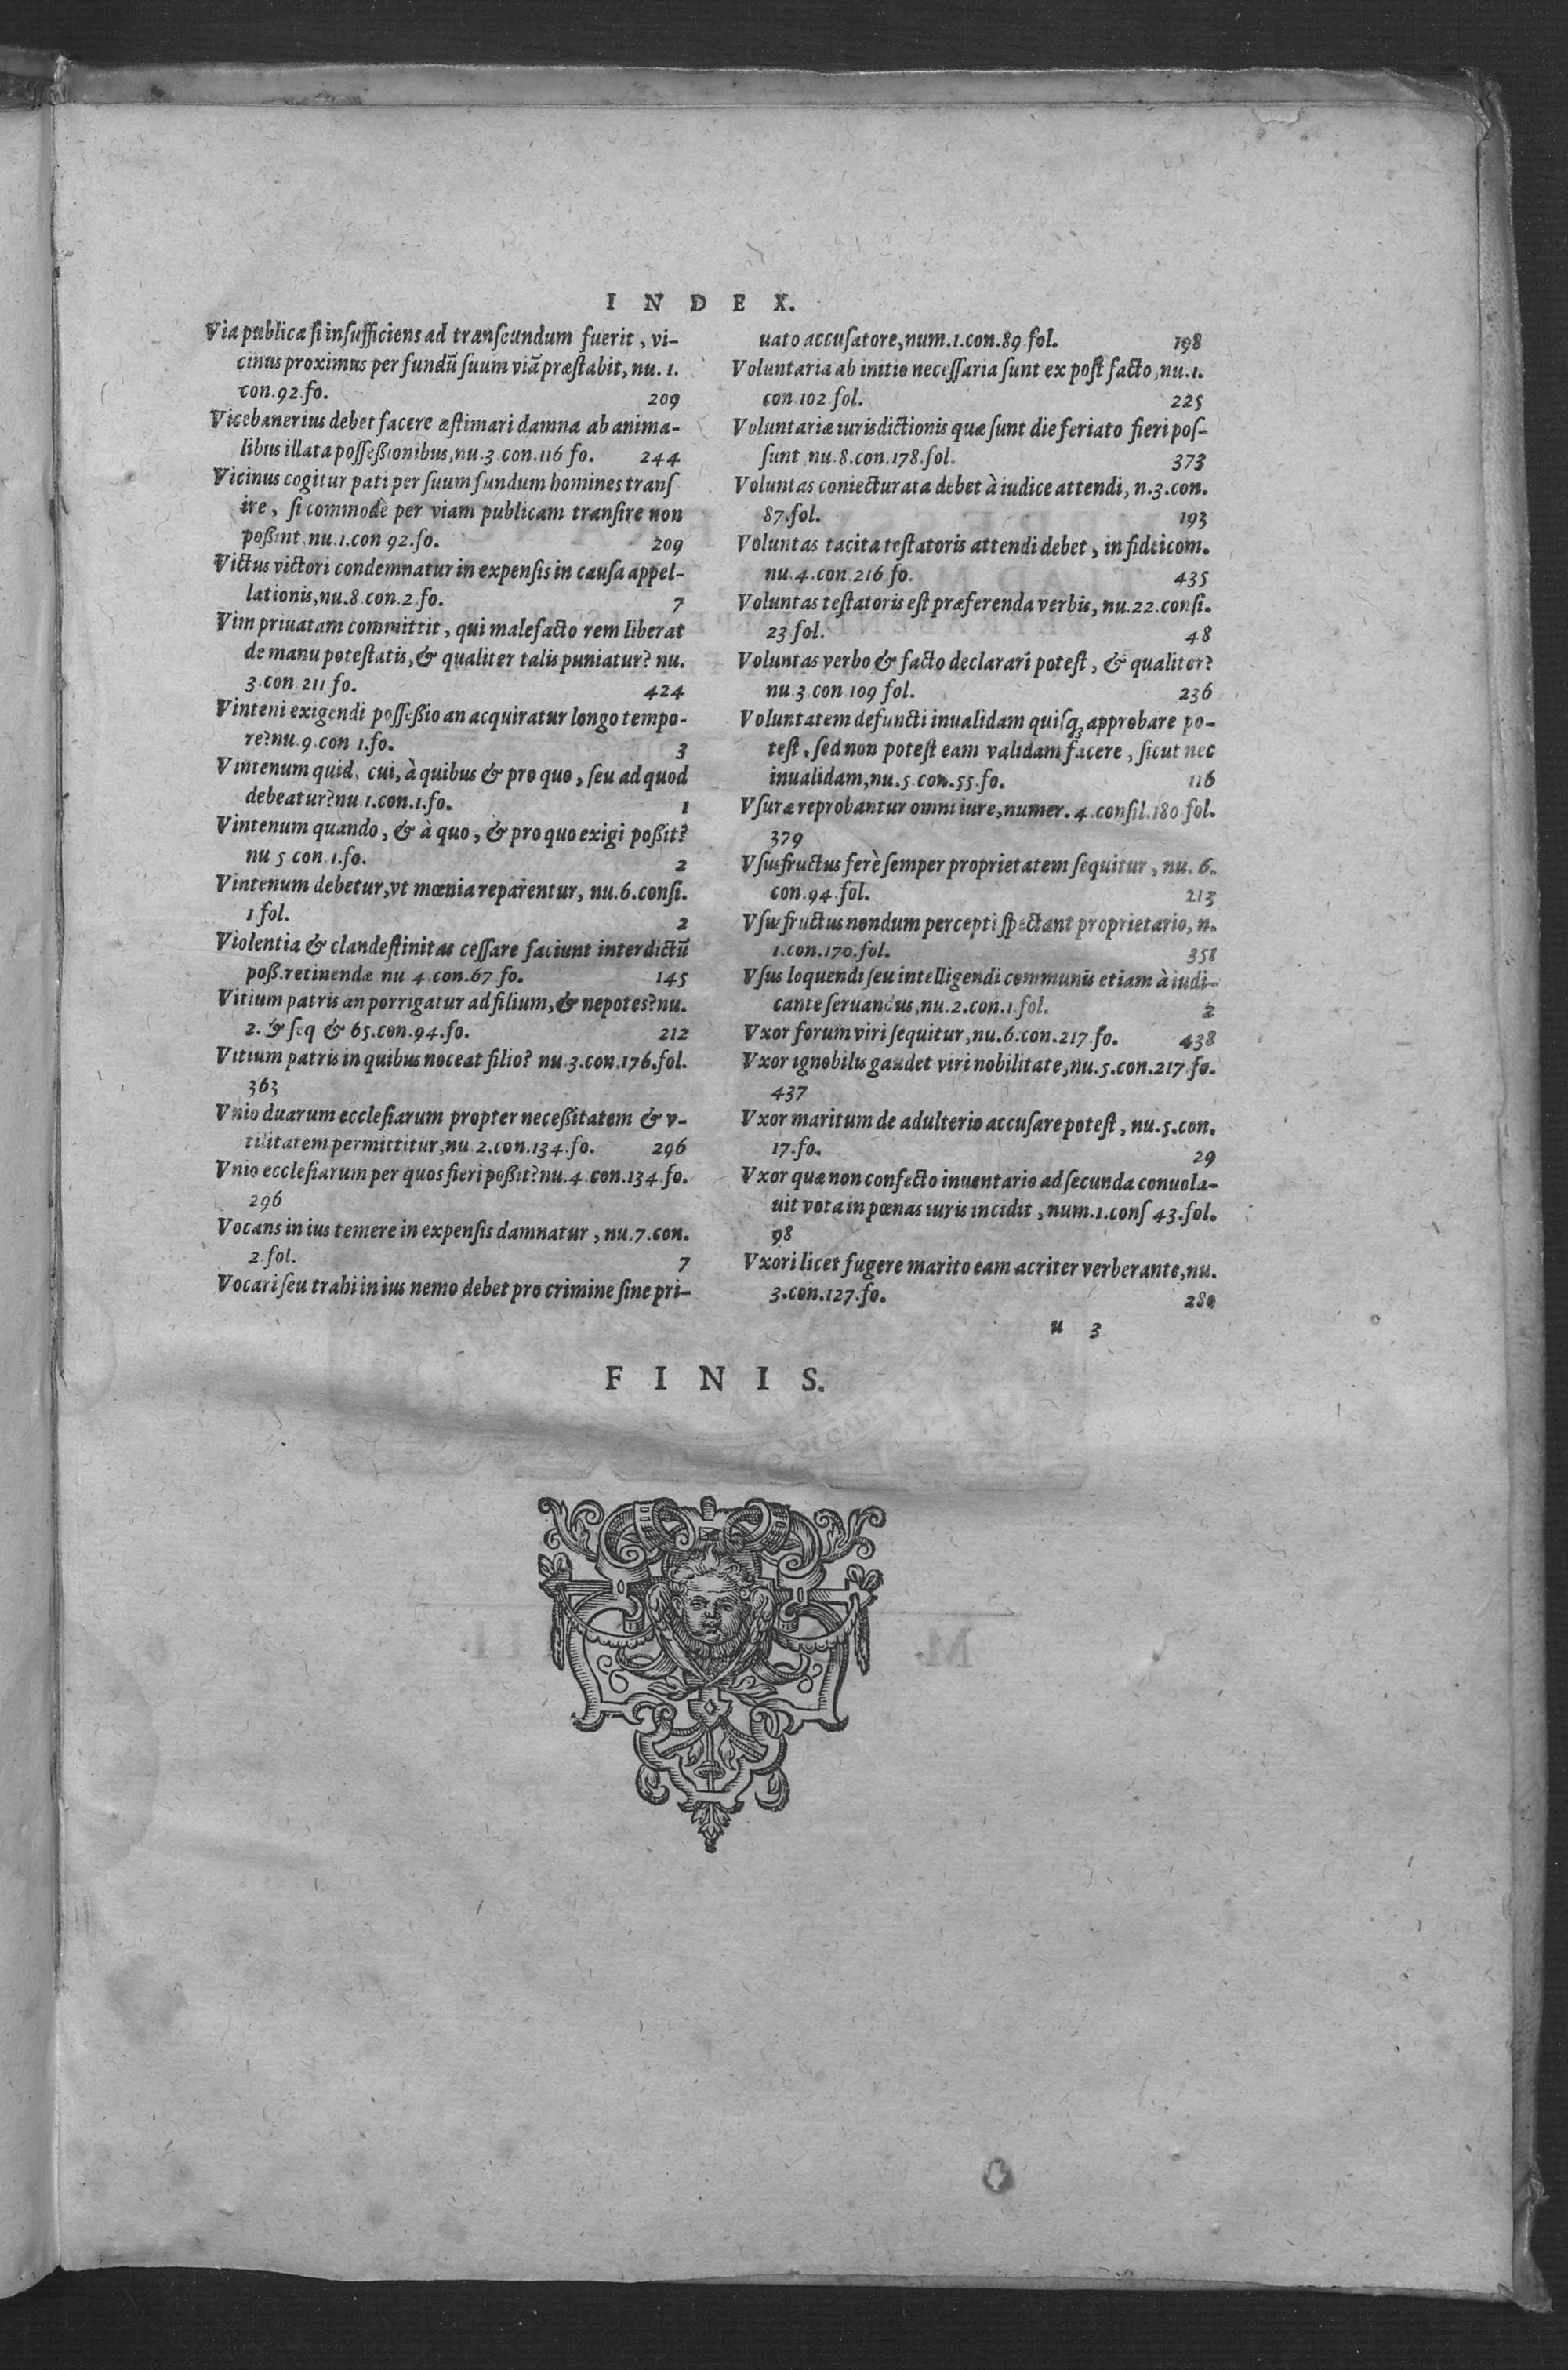 INDEX.
Via publicæ si insufficiens ad transeundum fuerit, vi-
cinus proximus per fundū suum viā præstabit, nu. 1.
con. 92. fo. 209
Vicebanerius debet facere æstimari damna ab anima-
libus illata possessionibus, nu. 3. con. 116 fo. 244
Vicinus cogitur pati per suum fundum homines trans
ire, si commodè per viam publicam transire non
possint, nu. 1. con 92. fo. 209
Victus victori condemnatur in expensis in causa appel-
lationis, nu. 8. con. 2. fo. 7
Vim priuatam committit, qui malefacto rem liberat
de manu potestatis, & qualiter talis puniatur? nu.
3. con. 211 fo. 424
Vinteni exigendi possessio an acquiratur longo tempo-
re? nu. 9. con 1. fo. 3
Vintenum quid, cui, à quibus & pro quo, seu ad quod
debeatur? nu. 1. con. 1. fo. 1
Vintenum quando, & à quo, & pro quo exigi possit?
nu 5 con. 1. fo. 2
Vintenum debetur, vt mœnia reparentur, nu. 6. consi.
1 fol. 2
Violentia & clandestinitas cessare faciunt interdictū
poss. retinendæ nu 4. con. 67. fo. 145
Vitium patris an porrigatur ad filium, & nepotes? nu.
2. & seq & 65. con. 94. fo. 212
Vitium patris in quibus noceat filio? nu. 3. con. 176. fol.
363
Vnio duarum ecclesiarum propter necessitatem & v-
tilitatem permittitur, nu. 2. con. 134. fo. 296
Vnio ecclesiarum per quos fieri possit? nu. 4. con. 134. fo.
296
Vocans in ius temere in expensis damnatur, nu. 7. con.
2. fol. 7
Vocari seu trahi in ius nemo debet pro crimine sine pri-
uato accusatore, num. 1. con. 89. fol. 198
Voluntaria ab initio necessaria sunt ex post facto, nu. 1.
con. 102. fol. 225
Voluntariæ iurisdictionis quæ sunt die feriato fieri pos-
sunt, nu. 8. con. 178. fol. 373
Voluntas coniecturata debet à iudice attendi, n. 3. con.
87. fol. 193
Voluntas tacita testatoris attendi debet, in fideicom.
nu. 4. con. 216. fo. 435
Voluntas testatoris est præferenda verbis, nu. 22. consi.
23 fol. 48
Voluntas verbo & facto declarari potest, & qualiter?
nu. 3. con. 109 fol. 236
Voluntatem defuncti inualidam quisq; approbare po-
test, sed non potest eam validam facere, sicut nec
inualidam, nu. 5. con. 55. fo. 116
Vsuræ reprobantur omni iure, numer. 4. consil. 180. fol.
379
Vsusfructus ferè semper proprietatem sequitur, nu. 6.
con. 94. fol. 213
Vsusfructus nondum percepti spectant proprietario, n.
1. con. 170. fol. 358
Vsus loquendi seu intelligendi communis etiam à iudi-
cante seruandus, nu. 2. con. 1. fol. 2
Vxor forum viri sequitur, nu. 6. con. 217. fo. 438
Vxor ignobilis gaudet viri nobilitate, nu. 5. con. 217. fo.
437
Vxor maritum de adulterio accusare potest, nu. 5. con.
17. fo. 29
Vxor quæ non confecto inuentario ad secunda conuola-
uit vota in pœnas iuris incidit, num. 1. cons 43. fol.
98
Vxori licet fugere marito eam acriter verberante, nu.
3. con. 127. fo. 280
u 3
FINIS.